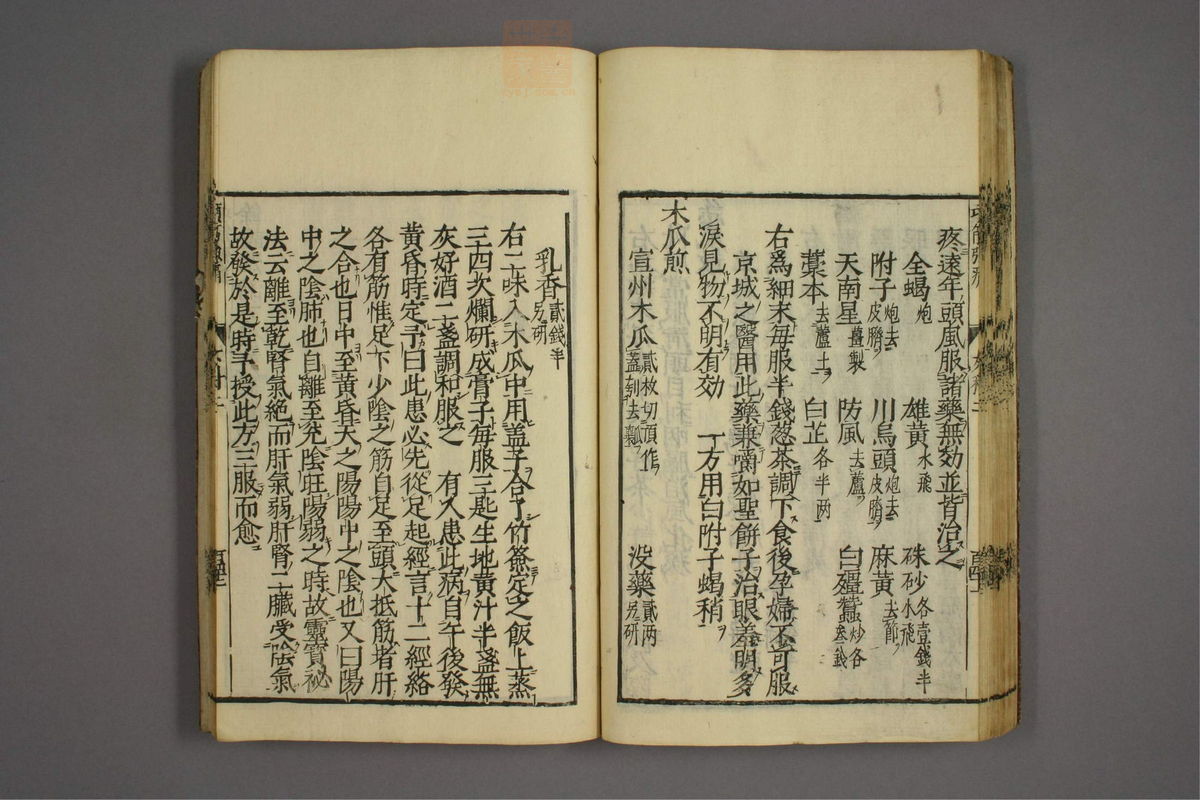 疼遠年頭風服諸藥無効並皆治之
全蝎炮 雄黄水飛 硃砂各壹錢半水飛
附子炮去皮臍 川烏頭炮去皮臍 麻黄去節
天南星薑製 防風去蘆 白殭蠶炒各叁錢
藁本去蘆土 白芷各半兩
右為細末毎服半錢葱茶調下食後孕婦不可服
京城之醫用此藥兼嚼如聖餅子治眼羞明多
涙見物不明有効 丁方用白附子蝎稍
木瓜煎
宣州木瓜貳枚切頂作盖刳去瓤 没藥貳两另研
乳香貳錢半另研
右二味入木瓜中用盖子合了竹簽定之飯上蒸
三四次爛研成膏子毎服三匙生地黄汁半盞無
灰好酒二盞調和服之 有人患此病自午後發
黄昏時定予曰此患必先從足起經言十二經絡
各有筋惟足下少陰之筋自足至頭大抵筋者肝
之合也日中至黄昏天之陽陽中之陰也又曰陽
中之陰肺也自離至兊陰旺陽弱之時故靈寶祕
法云離至乾腎氣絶而肝氣弱肝腎二臟受陰氣
故發於是時予授此方三服而愈